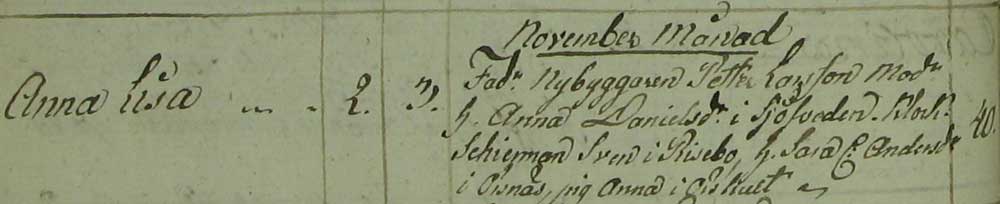 November Månad
Anna Lisa 2. 3. Fadr Nybyggaren Petter Larsson Modr
h. Anna Danielsdr i Sjösveden. Klock. 40.
Schierman Sven i Risebo, h. Sara C: Andersdr
i Örsnäs, pig Anna i